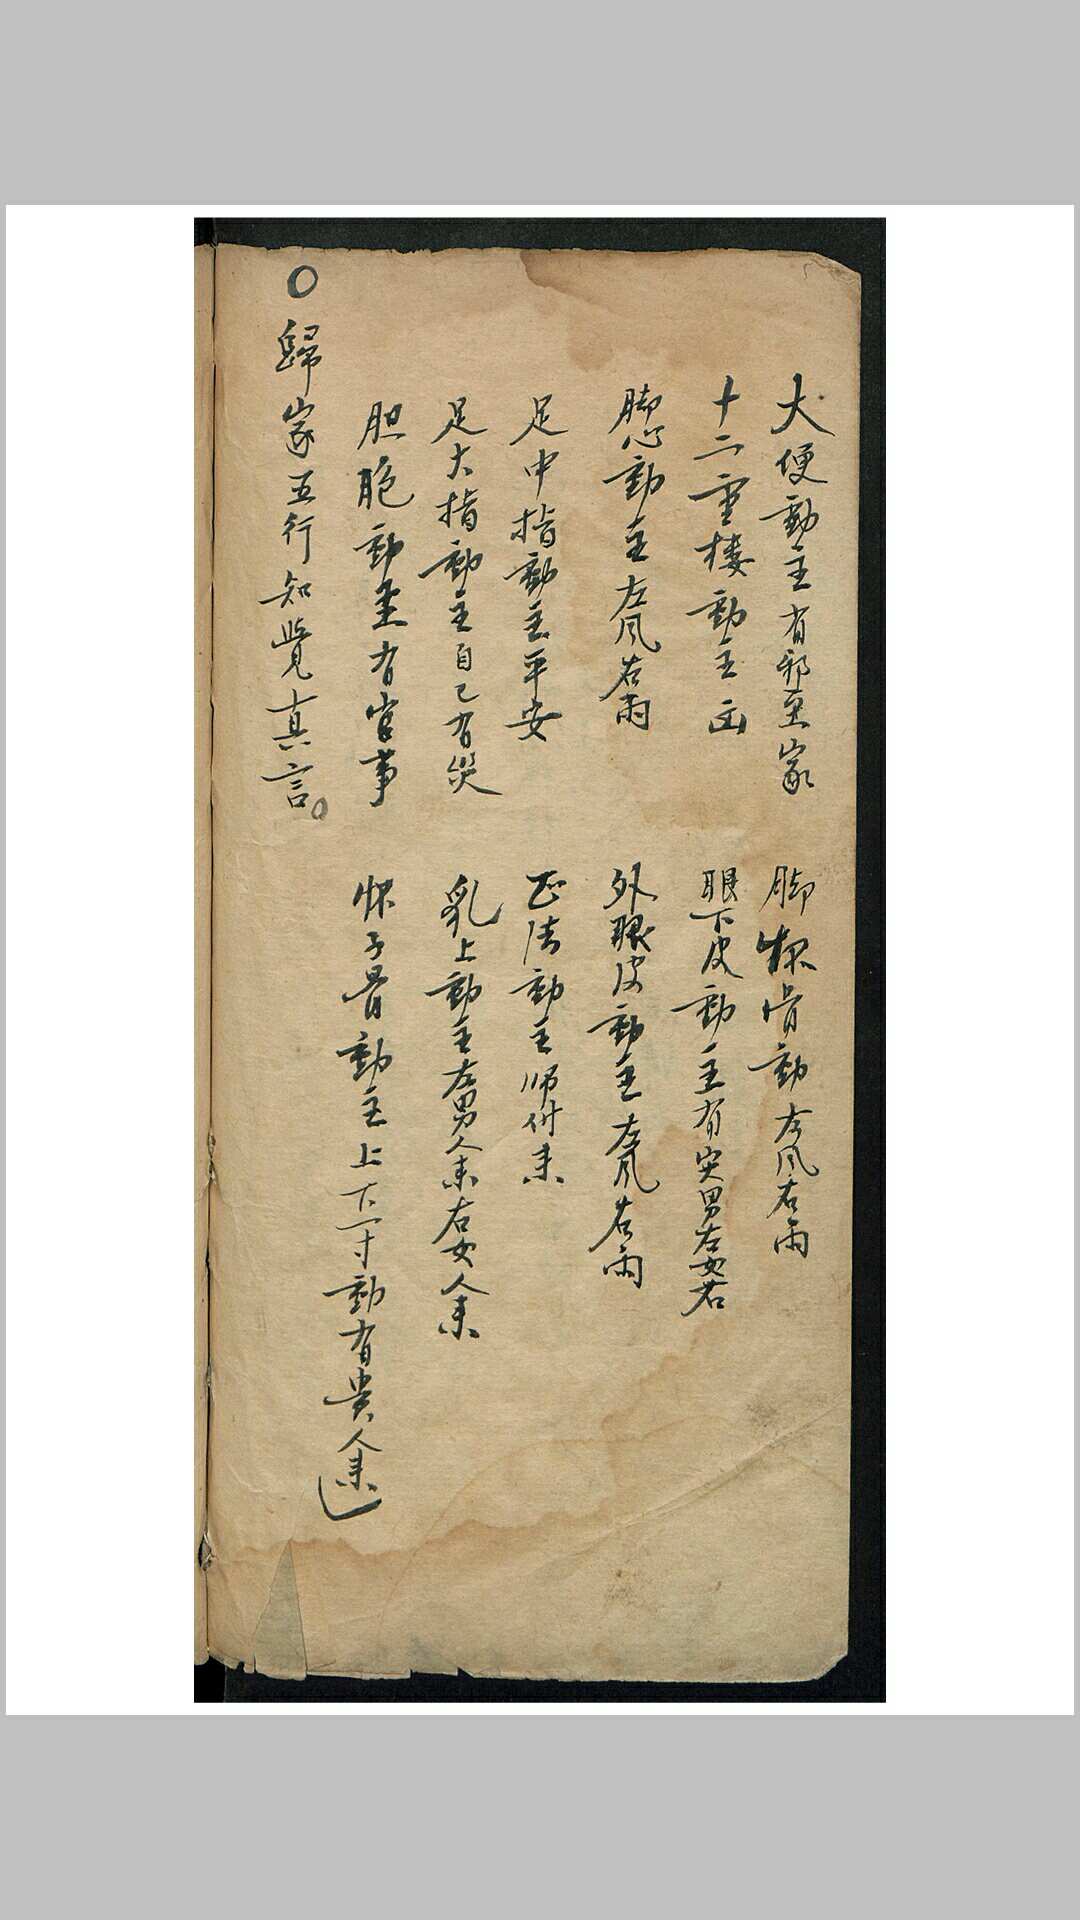 大便動主有邪至家
脚螺骨動左風右雨
十二重楼動主凶
眼下皮動主有災男左女右
脚心動主左風右雨
外眼皮動主左風右雨
足中指動主平安
正法動主师付来
足大指動主自己有災
乳上動主左男人来右女人来
胆胞動主有官事
子骨動主上下一寸動有贵人来
〇歸家五行知覺真言。